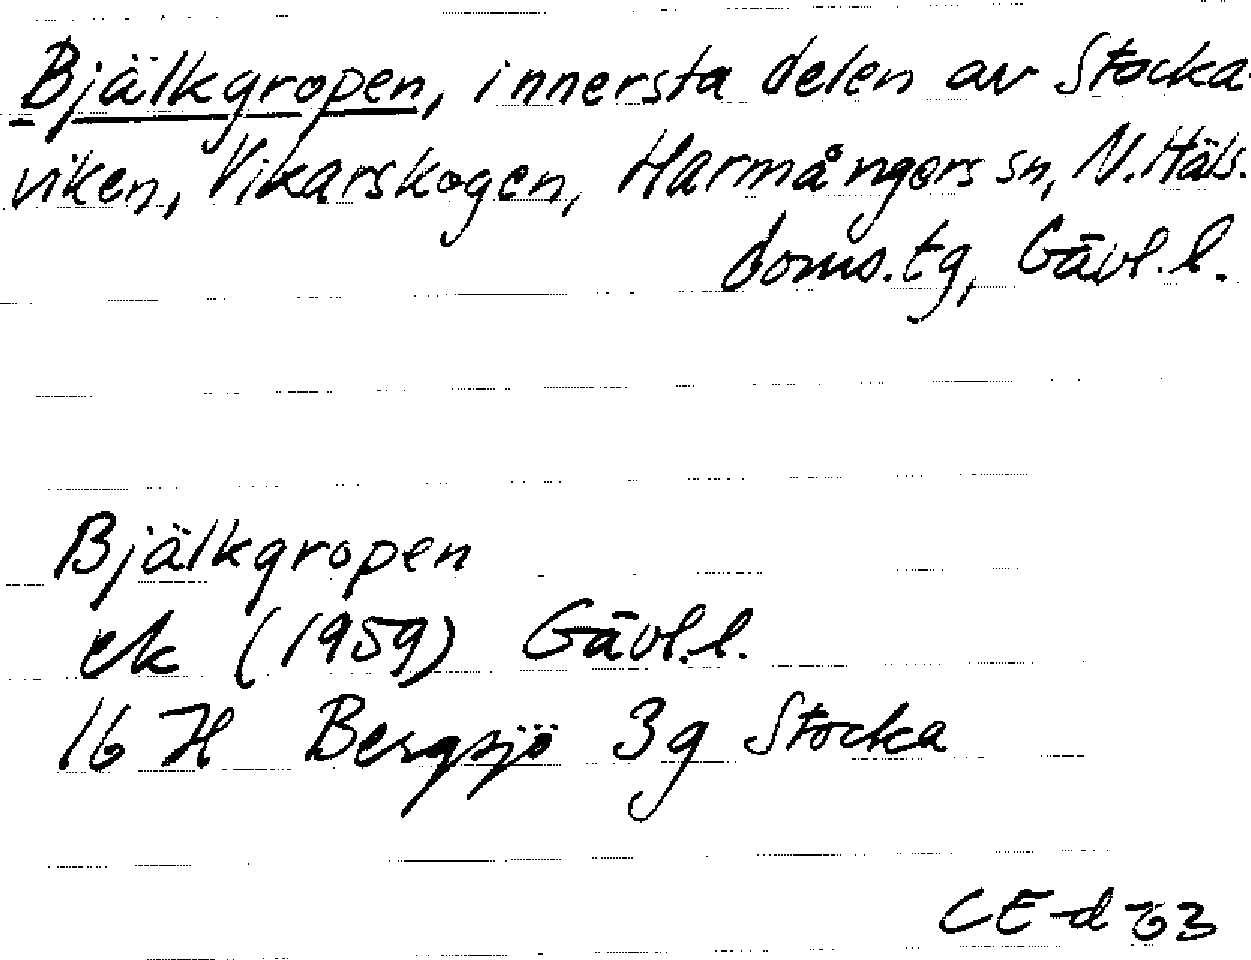 Bjälkgropen, innersta delen av Stocka-
viken, Vikarskogen, Harmångers sn, N. Häls.
doms.tg, Gävl.l.
Bjälkgropen
ek (1959) Gävl.l.
16 H Bergsjö 3g Stocka
CE-d-63